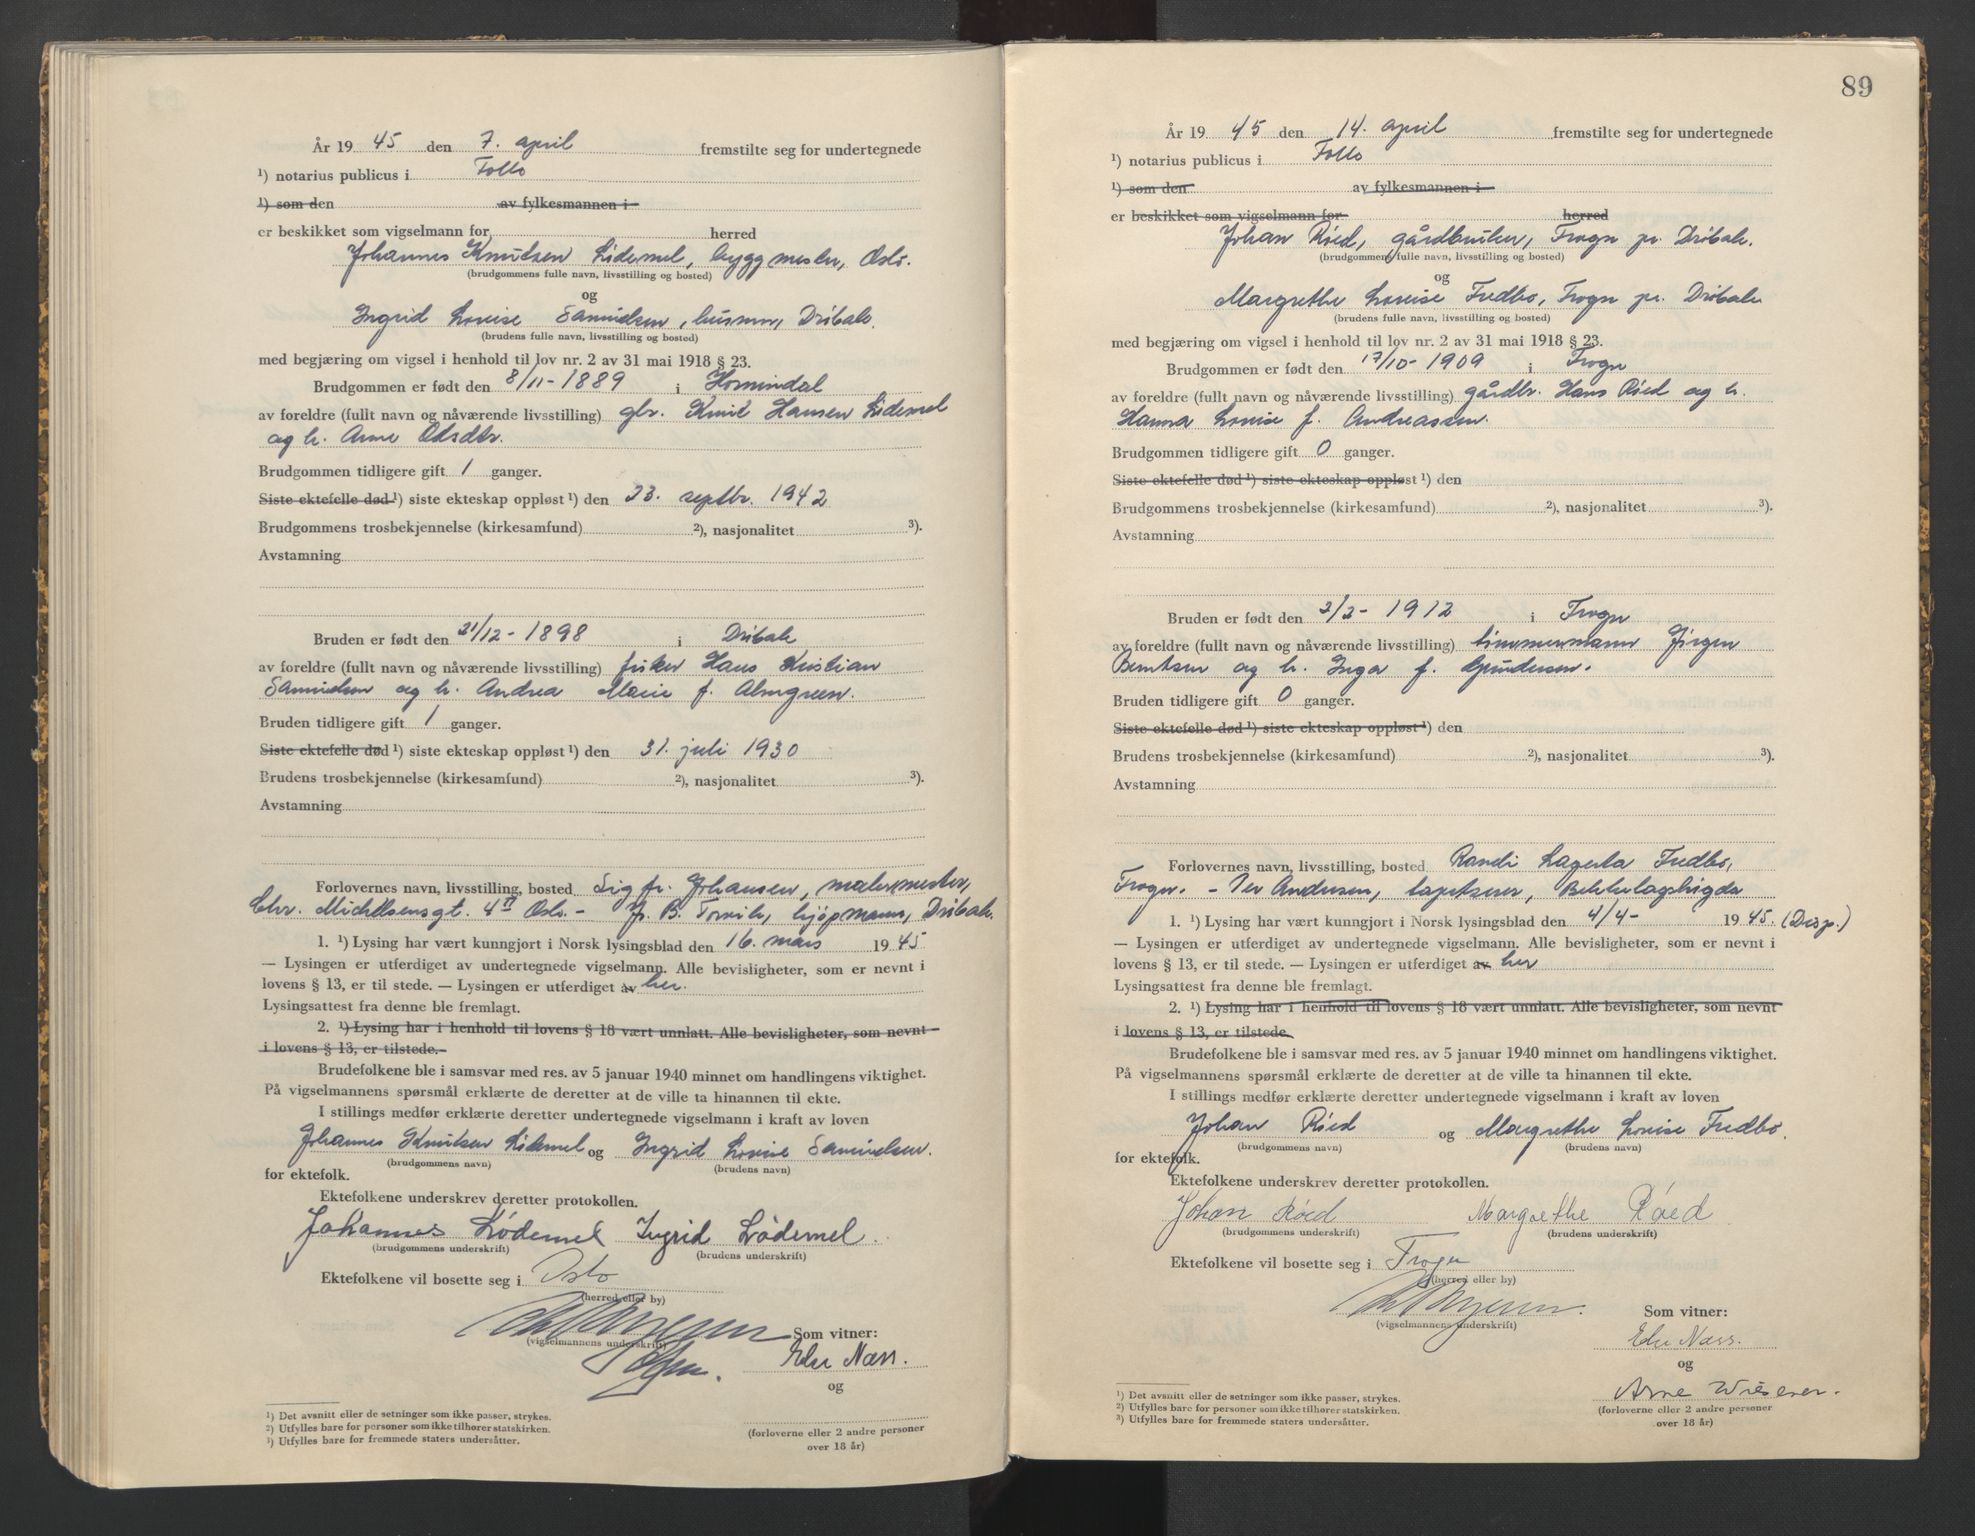 År 19 45 den 7. april fremstilte seg for undertegnede
¹) notarius publicus i Follo
¹) som den av fylkesmannen i
er beskikket som vigselmann for herred
Johannes Knutsen Lødemel, byggmester, Oslo.
(brudgommens fulle navn, livsstilling og bosted)
og
Ingrid Lovise Samuelsen, husmor, Drøbak.
(brudens fulle navn, livsstilling og bosted)
med begjæring om vigsel i henhold til lov nr. 2 av 31 mai 1918 § 23.
Brudgommen er født den 8/11-1889 i Hornindal
av foreldre (fullt navn og nåværende livsstilling) gbr. Knut Hansen Lødemel
og h. Anne Olsdtr.
Brudgommen tidligere gift 1 ganger.
Siste ektefelle død ¹) siste ekteskap oppløst ¹) den 23. septbr. 1942
Brudgommens trosbekjennelse (kirkesamfund) ²), nasjonalitet ³).
Avstamning
Bruden er født den 21/12-1898 i Drøbak
av foreldre (fullt navn og nåværende livsstilling) fisker Hans Kristian
Samuelsen og h. Andrea Marie f. Almgreen.
Bruden tidligere gift 1 ganger.
Siste ektefelle død ¹) siste ekteskap oppløst ¹) den 31. juli 1930
Brudens trosbekjennelse (kirkesamfund) ²), nasjonalitet ³).
Avstamning
Forlovernes navn, livsstilling, bosted Sigfr. Johansen, malermester,
Chr. Michelsensgt. 4 II Oslo. - J. B. Torvik, kjøpmann, Drøbak.
1. ¹) Lysing har vært kunngjort i Norsk lysingsblad den 16. mars 1945
— Lysingen er utferdiget av undertegnede vigselmann. Alle bevisligheter, som er nevnt i
lovens § 13, er til stede. — Lysingen er utferdiget av her.
Lysingsattest fra denne ble fremlagt.
2. ¹) Lysing har i henhold til lovens § 18 vært unnlatt. Alle bevisligheter, som nevnt
i lovens § 13, er tilstede.
Brudefolkene ble i samsvar med res. av 5 januar 1940 minnet om handlingens viktighet.
På vigselmannens spørsmål erklærte de deretter at de ville ta hinannen til ekte.
I stillings medfør erklærte deretter undertegnede vigselmann i kraft av loven
Johannes Knutsen Lødemel og Ingrid Lovise Samuelsen.
(brudgommens navn) (brudens navn)
for ektefolk.
Ektefolkene underskrev deretter protokollen.
Johannes Lødemel Ingrid Lødemel.
(brudgommens underskrift) (brudens underskrift)
Ektefolkene vil bosette seg i Oslo
(herred eller by)
Som vitner:
(vigselmannens underskrift)
Else Næss.
og
¹) Det avsnitt eller de setninger som ikke passer, strykes.
²) Utfylles bare for personer som ikke tilhører statskirken.
³) Utfylles bare for fremmede staters undersåtter.
(forloverne eller 2 andre personer
over 18 år)
89
År 19 45 den 14. april fremstilte seg for undertegnede
¹) notarius publicus i Follo
¹) som den av fylkesmannen i
er beskikket som vigselmann for herred
Johan Røed, gårdbruker, Frogn pr. Drøbak.
(brudgommens fulle navn, livsstilling og bosted)
og
Margrethe Lovise Fredbo, Frogn pr. Drøbak
(brudens fulle navn, livsstilling og bosted)
med begjæring om vigsel i henhold til lov nr. 2 av 31 mai 1918 § 23.
Brudgommen er født den 17/10-1909 i Frogn
av foreldre (fullt navn og nåværende livsstilling) gårdbr. Hans Røed og h.
Hanna Lovise f. Andreassen.
Brudgommen tidligere gift 0 ganger.
Siste ektefelle død ¹) siste ekteskap oppløst ¹) den
Brudgommens trosbekjennelse (kirkesamfund) ²), nasjonalitet ³).
Avstamning
Bruden er født den 2/2-1912 i Frogn
av foreldre (fullt navn og nåværende livsstilling) tømmermann Jørgen
Berntsen og h. Inga f. Gundersen.
Bruden tidligere gift 0 ganger.
Siste ektefelle død ¹) siste ekteskap oppløst ¹) den
Brudens trosbekjennelse (kirkesamfund) ²), nasjonalitet ³).
Avstamning
Forlovernes navn, livsstilling, bosted Randi Lagerta Fredbo,
Frogn. - Per Andersen, tapetserer, Bekkelagshøgda
1. ¹) Lysing har vært kunngjort i Norsk lysingsblad den 4/4- 1945. (Disp.)
— Lysingen er utferdiget av undertegnede vigselmann. Alle bevisligheter, som er nevnt i
lovens § 13, er til stede. — Lysingen er utferdiget av her
Lysingsattest fra denne ble fremlagt.
2. ¹) Lysing har i henhold til lovens § 18 vært unnlatt. Alle bevisligheter, som nevnt
i lovens § 13, er tilstede.
Brudefolkene ble i samsvar med res. av 5 januar 1940 minnet om handlingens viktighet.
På vigselmannens spørsmål erklærte de deretter at de ville ta hinannen til ekte.
I stillings medfør erklærte deretter undertegnede vigselmann i kraft av loven
Johan Røed og Margrethe Lovise Fredbo.
(brudgommens navn) (brudens navn)
for ektefolk.
Ektefolkene underskrev deretter protokollen.
Johan Røed Margrethe Røed
(brudgommens underskrift) (brudens underskrift)
Ektefolkene vil bosette seg i Frogn
(herred eller by)
Som vitner:
(vigselmannens underskrift)
Else Næss.
og
Arne Wiesener.
¹) Det avsnitt eller de setninger som ikke passer, strykes.
²) Utfylles bare for personer som ikke tilhører statskirken.
³) Utfylles bare for fremmede staters undersåtter.
(forloverne eller 2 andre personer
over 18 år)